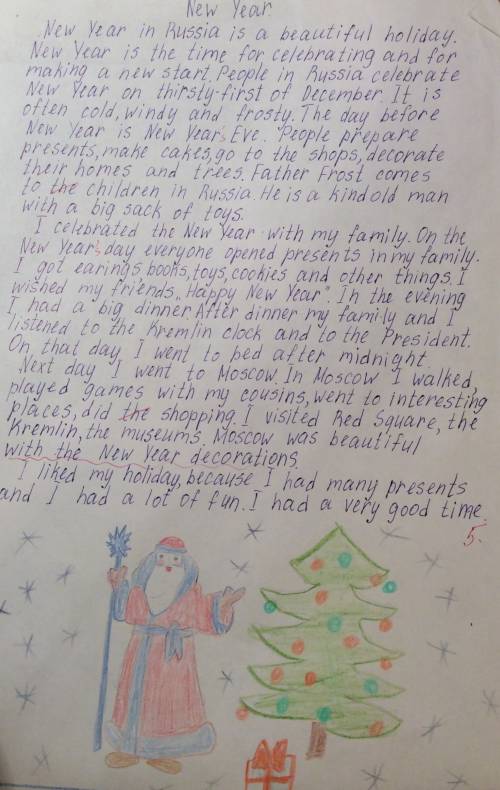 New Year.
New Year in Russia is a beautiful holiday.
New Year is the time for celebrating and for
making a new start. People in Russia celebrate
New Year on thirsty-first of December. It is
often cold, windy and frosty. The day before
New Year is New Year's Eve. People prepare
presents, make cakes, go to the shops, decorate
their homes and trees. Father Frost comes
to the children in Russia. He is a kind old man
with a big sack of toys.
I celebrated the New Year with my family. On the
New Year's day everyone opened presents in my family.
I got earings, books, toys, cookies and other things. I
wished my friends „Happy New Year". In the evening
I had a big dinner. After dinner my family and I
listened to the Kremlin clock and to the President.
On that day I went to bed after midnight.
Next day I went to Moscow. In Moscow I walked,
played games with my cousins, went to interesting
places, did the shopping. I visited Red Square, the
Kremlin, the museums. Moscow was beautiful
with the New Year decorations.
I liked my holiday, because I had many presents
and I had a lot of fun. I had a very good time.
5-